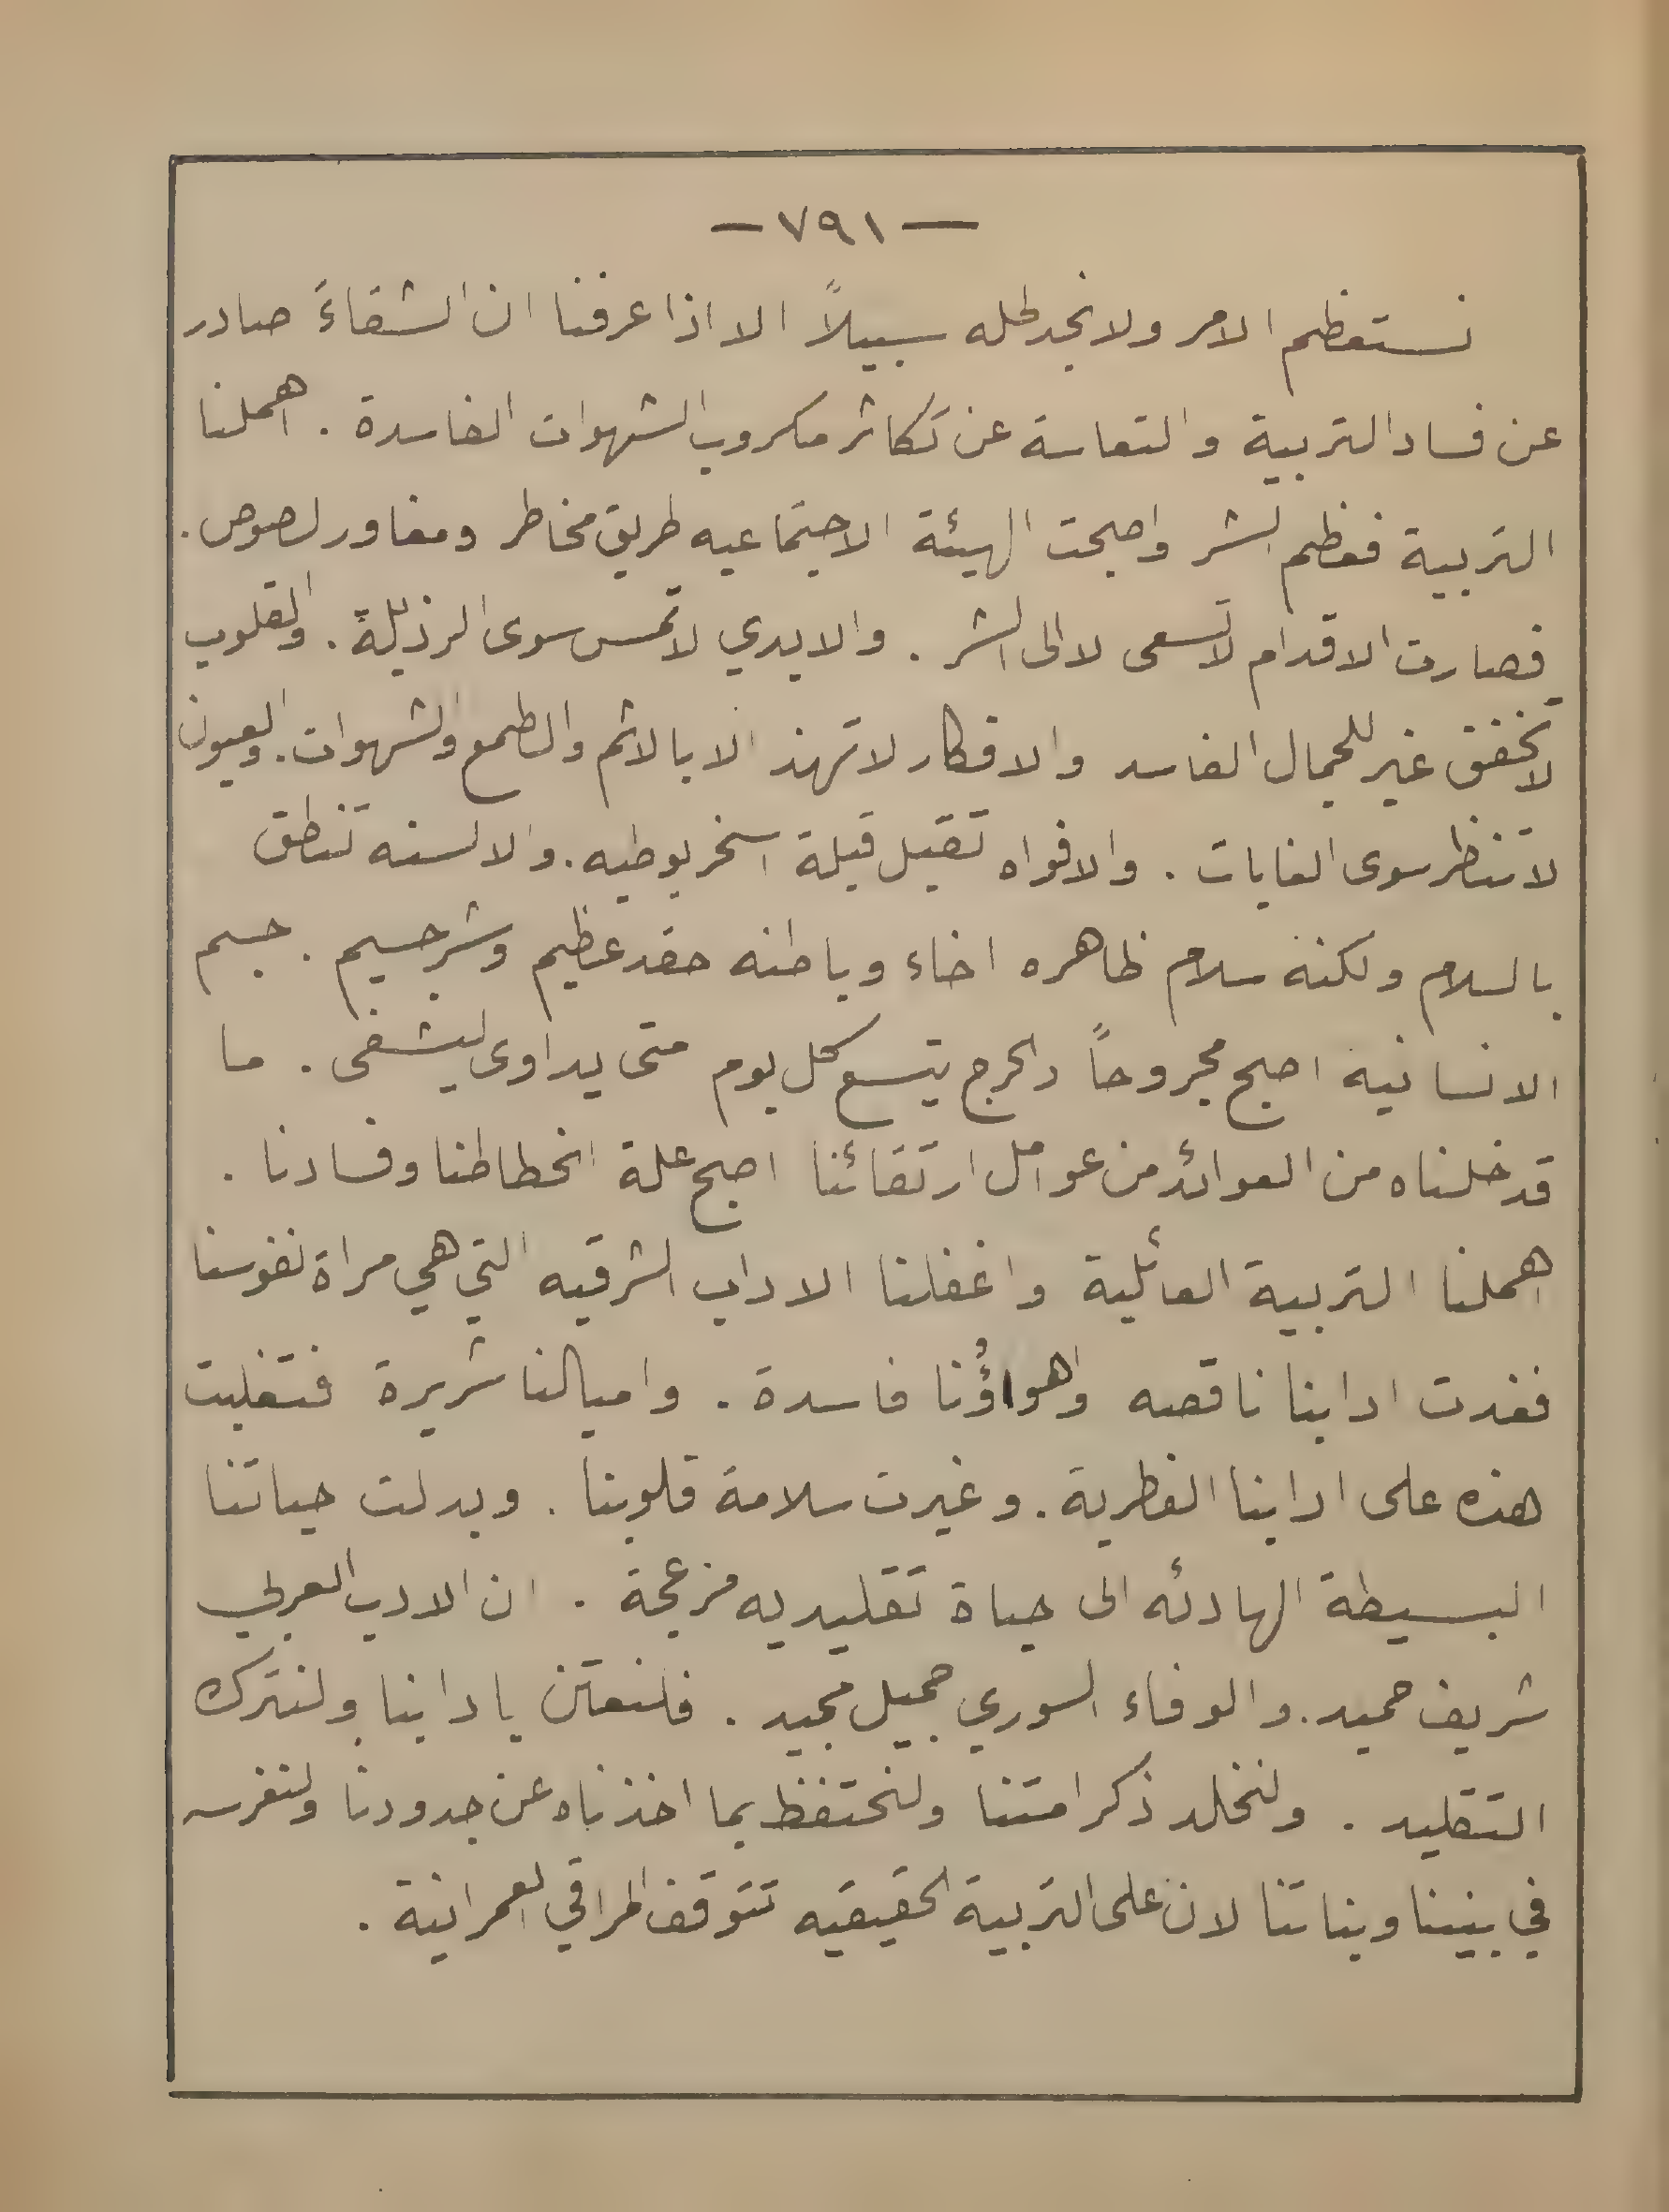 — ٧٩١ —
نستعظم الامر ولا نجد لحله سبيلاً الا اذا عرفنا ان الشقاءَ صادر
عن فساد التربية والتعاسة عن تكاثر مكروب الشهوات الفاسدة . اهملنا
التربية فعظم الشر واصبحت الهيئة الاجتماعيه طريق مخاطر ومغاور لصوص .
فصارت الاقدام لا تسعى لا الى الشر . والايدي لا تمس سوى الرذيلة . والقلوب
لا تخفق غير للجمال الفاسد والافكار لا تهذ الا بالاثم والطمع والشهوات . والعيون
لا تنظر سوى الغايات . والافواه تقبل قبلة اسخريوطيه . والالسنه تنطق
بالسلام ولكنه سلام ظاهره اخاء وباطنه حقد عظيم وشر جسيم . جسم
الانسانيه اصبح مجروحاً والجرح يتسع كل يوم متى يداوى ليشفى . ما
قد خلناه من العوائد من عوامل ارتقائنا اصبح علة انحطاطنا وفسادنا .
اهملنا التربية العائلية واغفلنا الاداب الشرقيه التي هي مراة نفوسنا
فغدت ادابنا ناقصه واهواؤُنا فاسدة . واميالنا شريرة فتغلبت
هذه على ادابنا الفطرية . وغيرت سلامة قلوبنا . وبدلت حياتنا
البسيطة الهادئه الى حياة تقليديه مزعجة . ان الادب العربي
شريف حميد . والوفاء السوري جميل مجيد . فلنعتن بادابنا ولنترك
التقليد . ولنخلد ذكر امتنا ولنحتفظ بما اخذناه عن جدودنا ولنغرسه
في بنينا وبناتنا لان على التربية الحقيقيه تتوقف المراقي العمرانية .